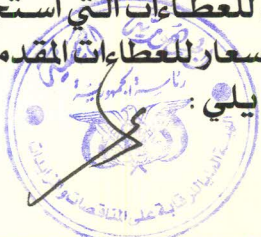 للعطاءات التي
سعار للعطاءات المقدم
يلي :
رئاسة الجمهورية
الهيئة العليا للرقابة على المناقصات والمزايدات